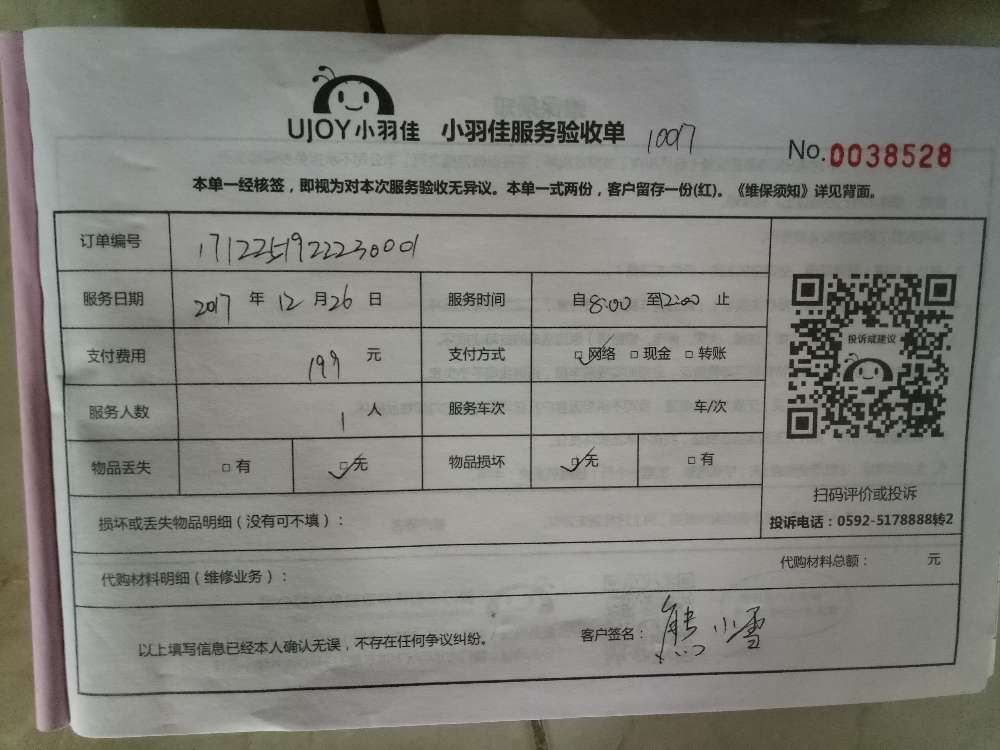 UJOY小羽佳 小羽佳服务验收单 10017
No.0038528
本单一经核签，即视为对本次服务验收无异议。本单一式两份，客户留存一份(红)。《维保须知》详见背面。
订单编号 1712251922230001
服务日期 2017 年 12 月 26 日 服务时间 自 8:00 至 12:00 止
投诉或建议
支付费用 199 元 支付方式 网络 现金 转账
服务人数 1 人 服务车次 车/次
物品丢失 有 无 物品损坏 无 有
扫码评价或投诉
损坏或丢失物品明细（没有可不填）：
投诉电话：0592-5178888转2
代购材料明细（维修业务）： 代购材料总额： 元
以上填写信息已经本人确认无误，不存在任何争议纠纷。 客户签名：熊小雪